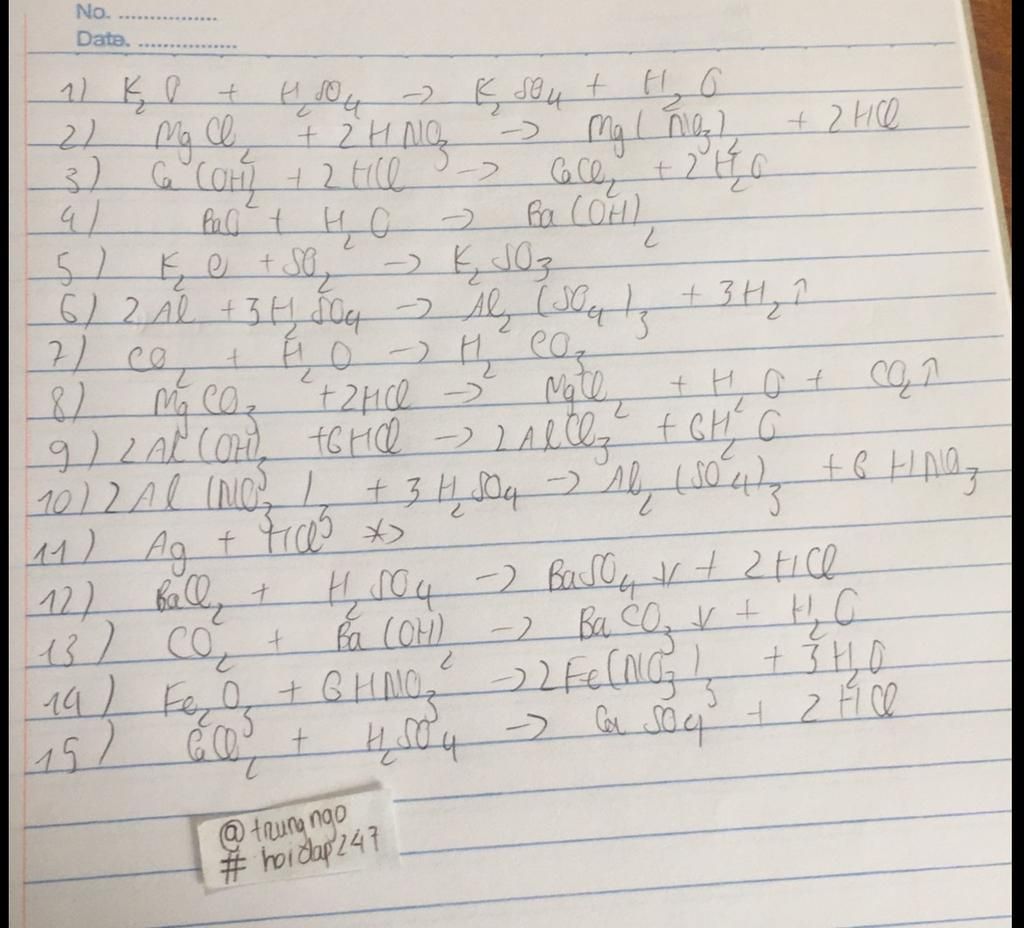 No. ................
Date. ................
1) K₂O + H₂SO₄ → K₂SO₄ + H₂O
2) MgCl₂ + 2HNO₃ → Mg(NO₃)₂ + 2HCl
3) Ca(OH)₂ + 2HCl → CaCl₂ + 2H₂O
4) BaO + H₂O → Ba(OH)₂
5) K₂O + SO₂ → K₂SO₃
6) 2Al + 3H₂SO₄ → Al₂(SO₄)₃ + 3H₂↑
7) CO₂ + H₂O → H₂CO₃
8) MgCO₃ + 2HCl → MgCl₂ + H₂O + CO₂↑
9) 2Al(OH)₃ + 6HCl → 2AlCl₃ + 6H₂O
10) 2Al(NO₃)₃ + 3H₂SO₄ → Al₂(SO₄)₃ + 6HNO₃
11) Ag + HCl ⇸
12) BaCl₂ + H₂SO₄ → BaSO₄↓ + 2HCl
13) CO₂ + Ba(OH)₂ → BaCO₃↓ + H₂O
14) Fe₂O₃ + 6HNO₃ → 2Fe(NO₃)₃ + 3H₂O
15) CaCl₂ + H₂SO₄ → CaSO₄ + 2HCl
@trungngo
# hoidap247